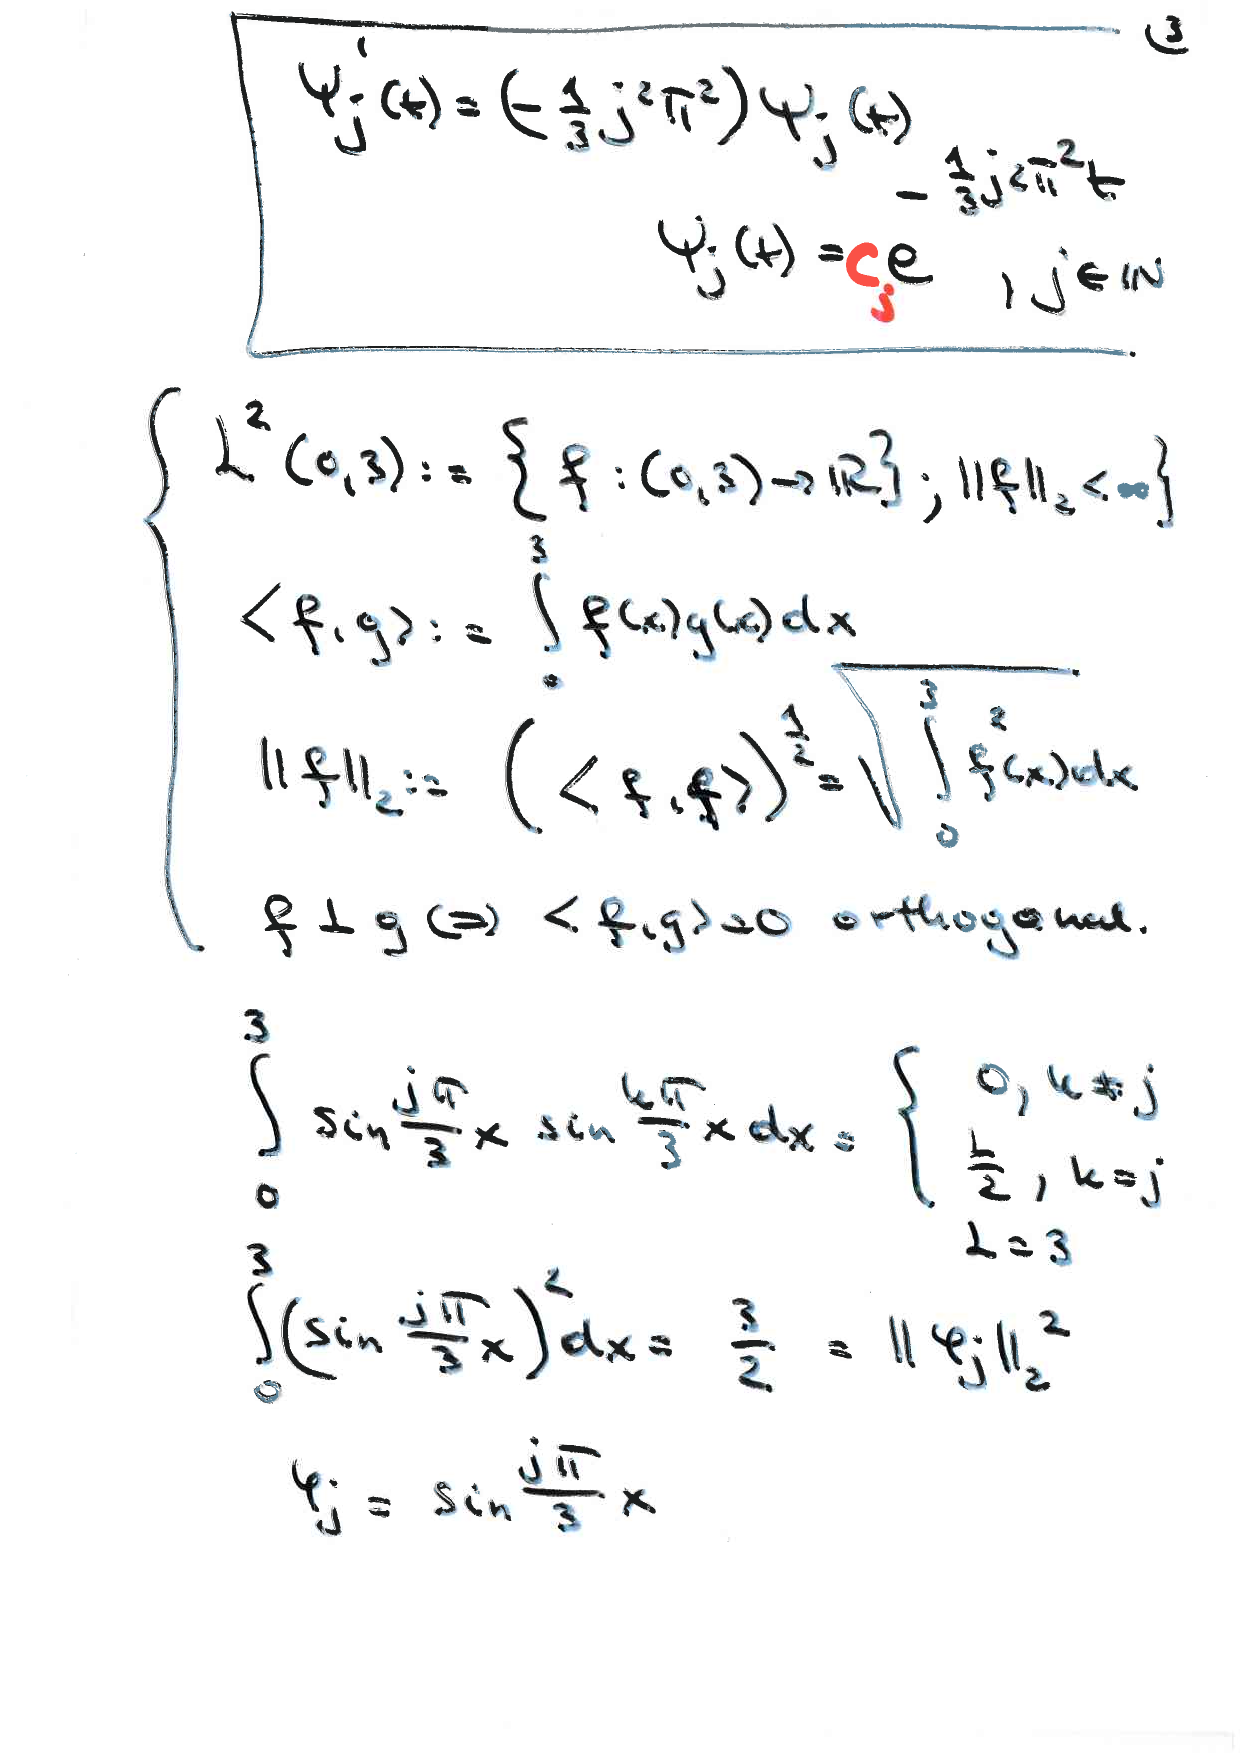 3
ψ_j'(t) = (-1/3 j²π²) ψ_j(t)
ψ_j(t) = c_j e^{-1/3 j²π² t}, j ∈ ℕ
L²(0,3) := { f : (0,3) → ℝ} ; ||f||₂ < ∞ }
< f, g > := ∫₀³ f(x) g(x) dx
||f||₂ := (< f, f >)^{1/2} = √(∫₀³ f²(x) dx)
f ⊥ g (=) < f, g > = 0 orthogonal.
∫₀³ sin jπ/3 x sin kπ/3 x dx = { 0, k ≠ j
L/2, k = j
L = 3
∫₀³ (sin jπ/3 x)² dx = 3/2 = ||φ_j||₂²
φ_j = sin jπ/3 x